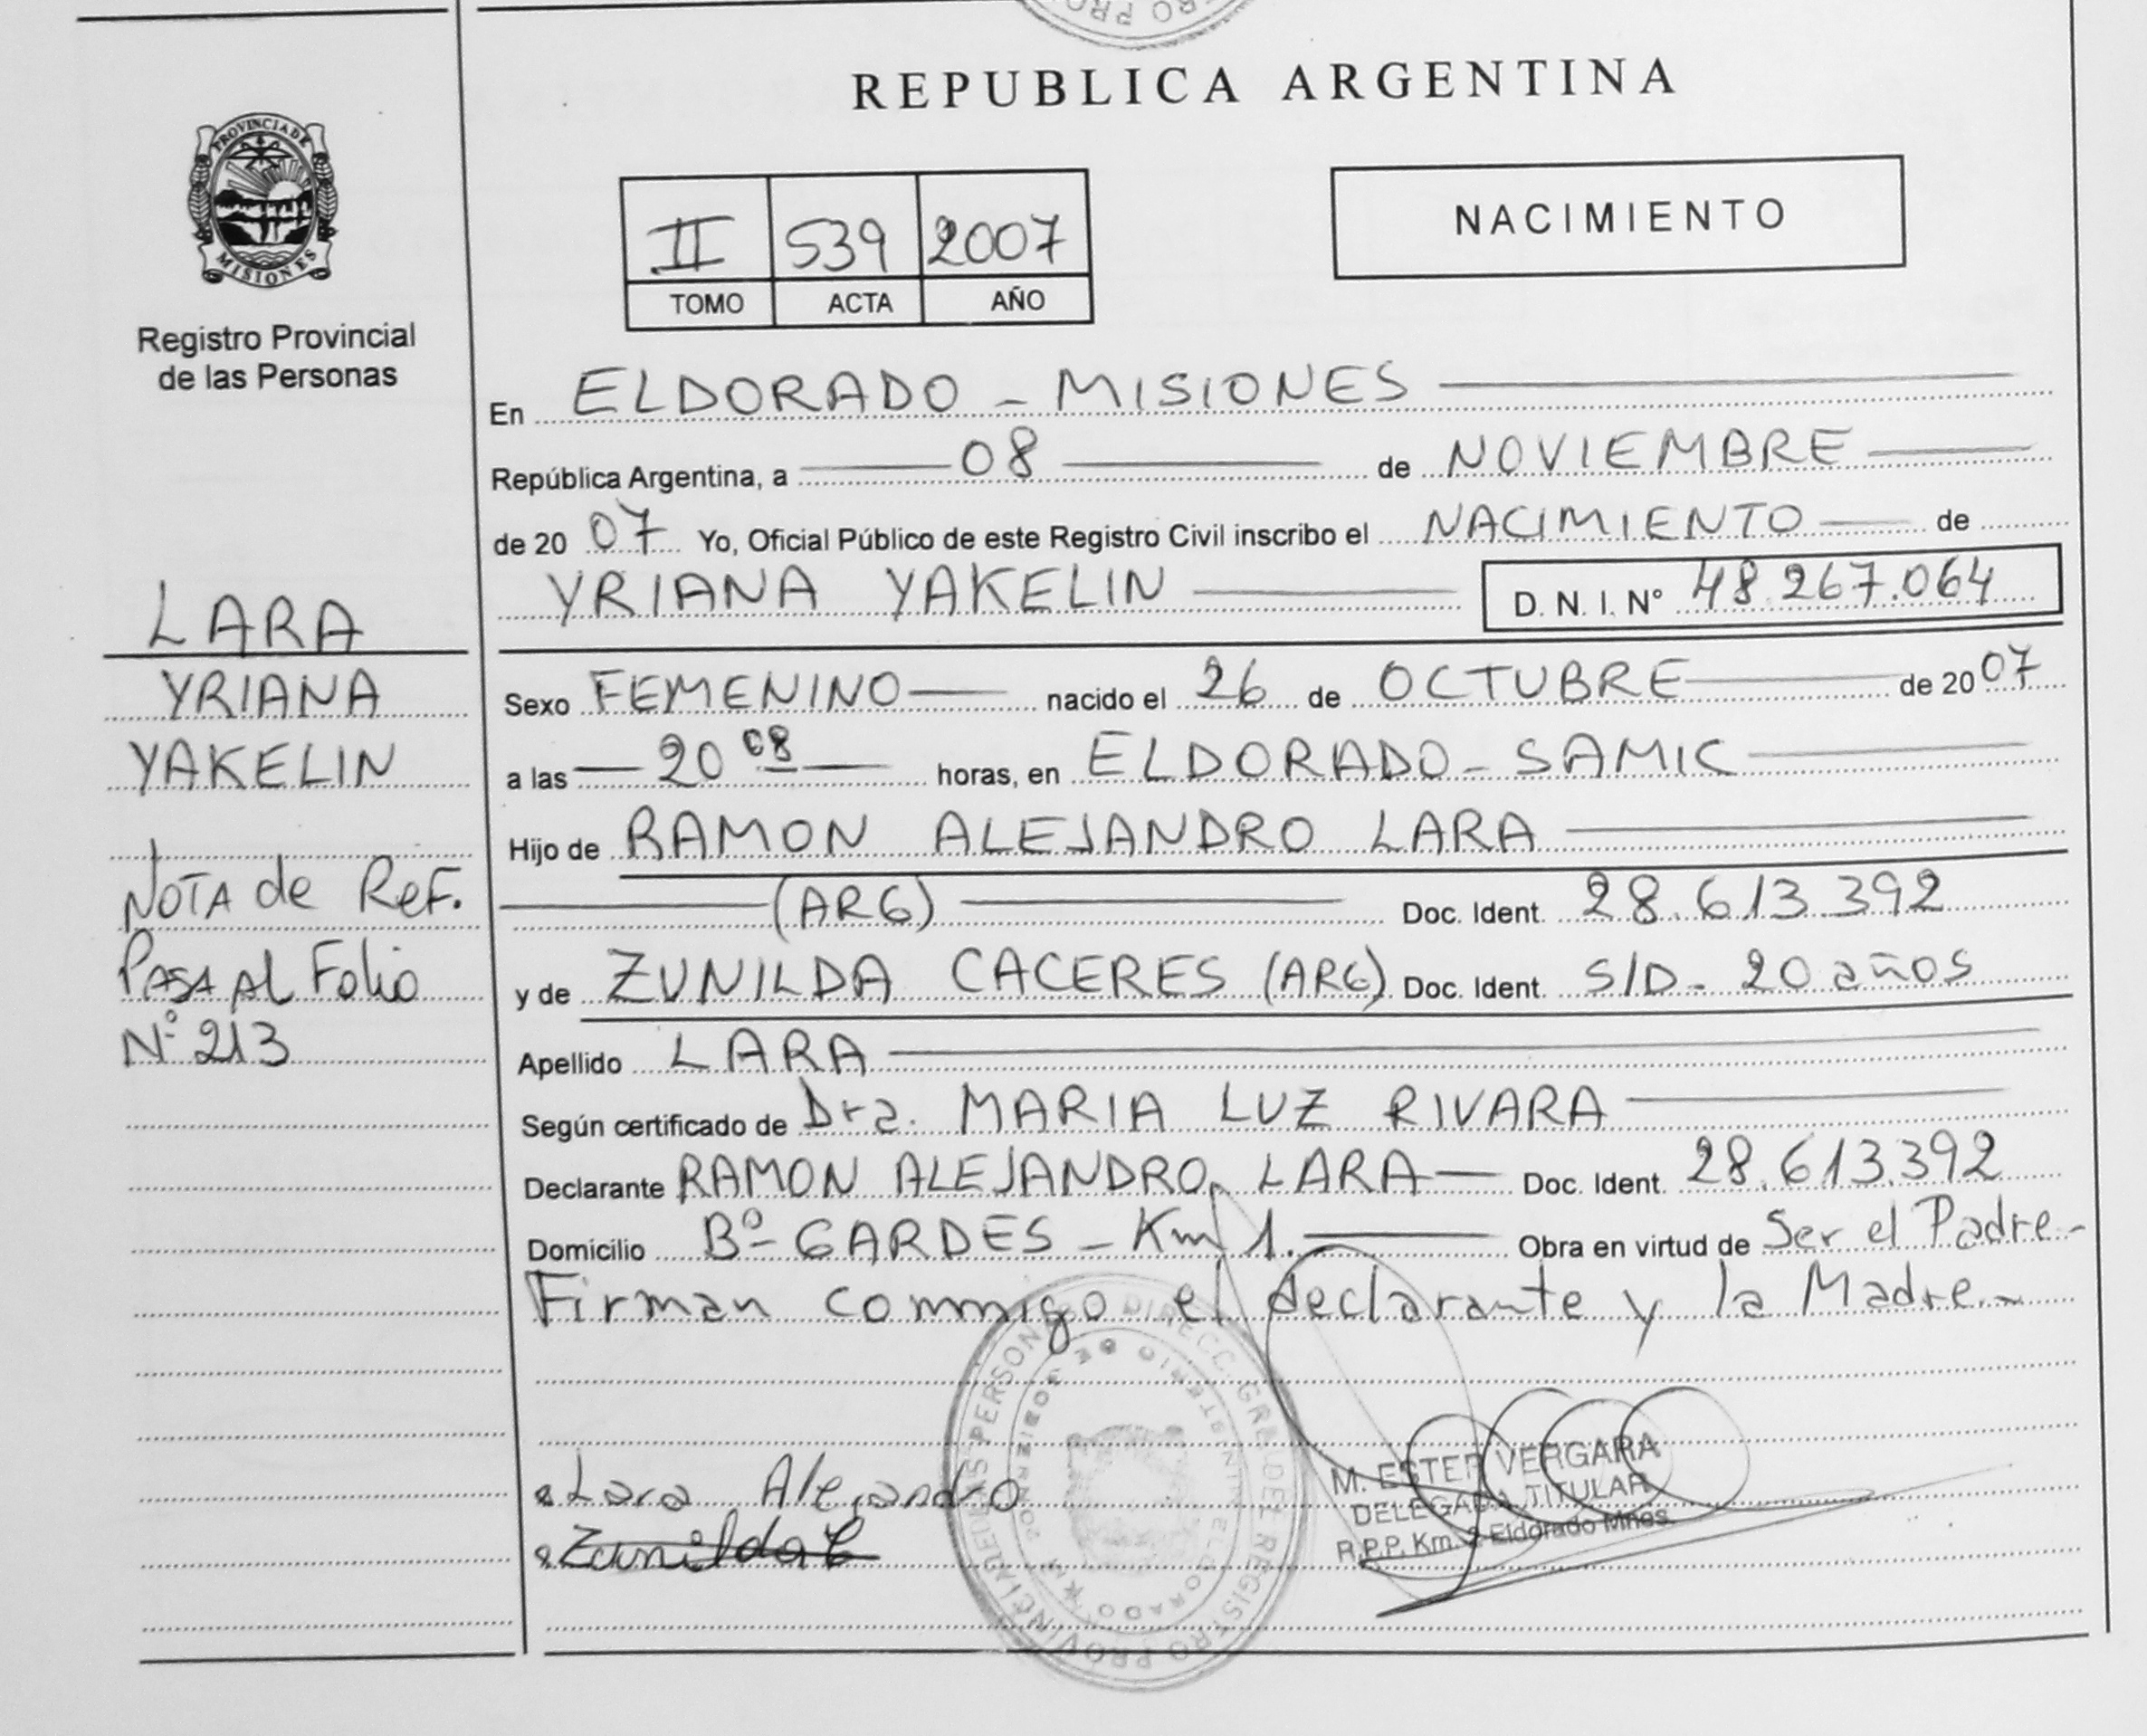 REPUBLICA ARGENTINA
PROVINCIA DE
MISIONES
Registro Provincial
de las Personas
II 539 2007
TOMO ACTA AÑO
NACIMIENTO
En ELDORADO - MISIONES
República Argentina, a 08 de NOVIEMBRE
de 20 07 Yo, Oficial Público de este Registro Civil inscribo el NACIMIENTO de
YRIANA YAKELIN D. N. I. N° 48.267.064
LARA
YRIANA
YAKELIN
NOTA de ReF.
PASA Al Folio
N° 213
Sexo FEMENINO nacido el 26 de OCTUBRE de 20 07
a las 20 08 horas, en ELDORADO - SAMIC
Hijo de RAMON ALEJANDRO LARA
(ARG) Doc. Ident. 28.613.392
y de ZUNILDA CACERES (ARG) Doc. Ident. S/D - 20 años
Apellido LARA
Según certificado de Dra. MARIA LUZ RIVARA
Declarante RAMON ALEJANDRO LARA Doc. Ident. 28.613.392
Domicilio Bº GARDES - Km 1. Obra en virtud de Ser el Padre-
Firman conmigo el declarante y la Madre.-
Lara Alejandro
Zunilda C
M. ESTER VERGARA
DELEGADA TITULAR
R.P.P. Km. 2 Eldorado Mnes.